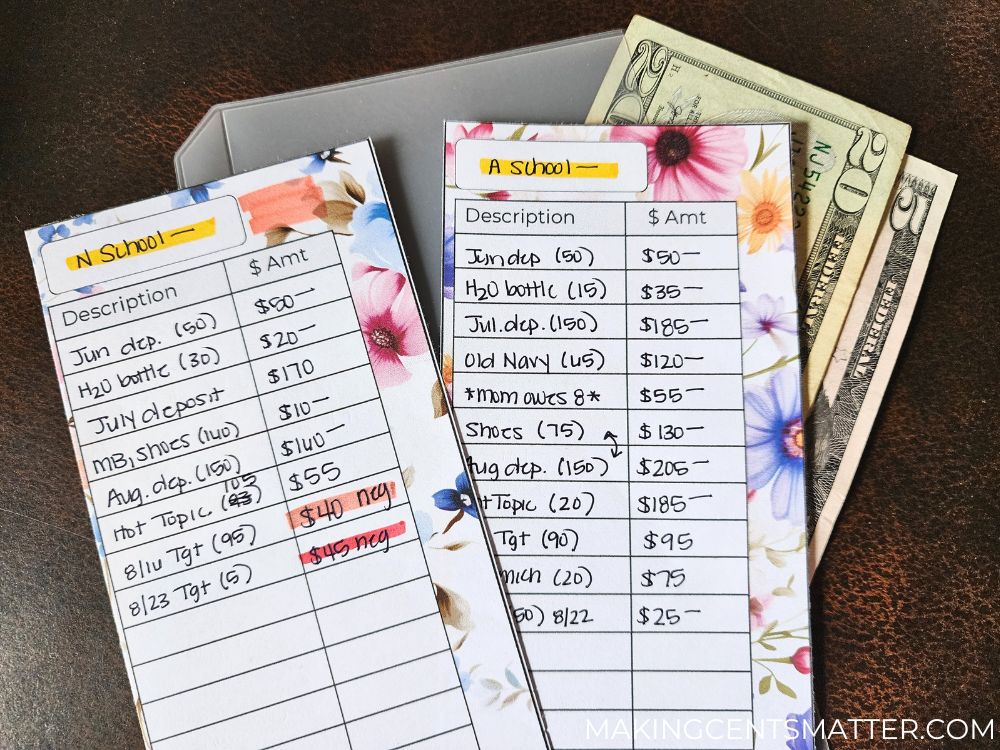 N School —
Description $ Amt
Jun dep. (50) $50—
H2O bottle (30) $20—
July deposit $170
MB, shoes (160) $10—
Aug. dep. (150) $160—
105
Hot Topic (83) $55
8/16 Tgt (95) $40 neg
8/23 Tgt (5) $45 neg
A School —
Description $ Amt
Jun dep (50) $50—
H2O bottle (15) $35—
Jul. dep. (150) $185—
Old Navy (65) $120—
*mom owes 8* $55—
Shoes (75) $130—
Aug dep. (150) $205—
t Topic (20) $185—
Tgt (90) $95
mich (20) $75
50) 8/22 $25—
20
20
NJ5422
FEDERAL
5
FEDERAL
MAKINGCENTSMATTER.COM